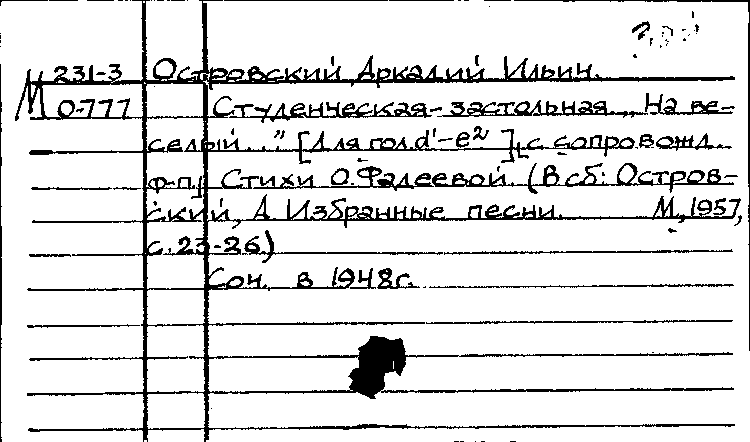 М 231-3 Островский, Аркадий Ильич.
0-777 Студенческая-застольная. „На ве-
селый..." [Для гол. d'-e² ], с сопровожд.
ф-п.] Стихи О. Фадеевой. (В сб: Остров-
ский, А. Избранные песни. М., 1957,
с. 23-26.)
Соч. в 1948г.